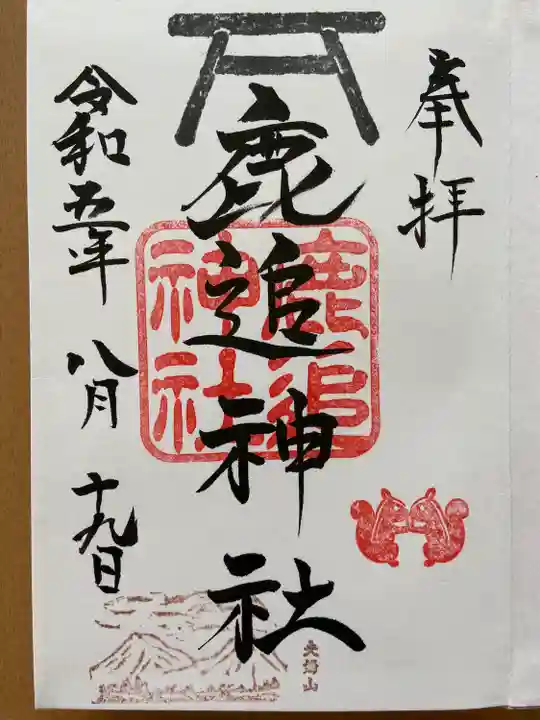 奉拝
鹿追神社
鹿追
神社
令和五年八月十九日
夫婦山